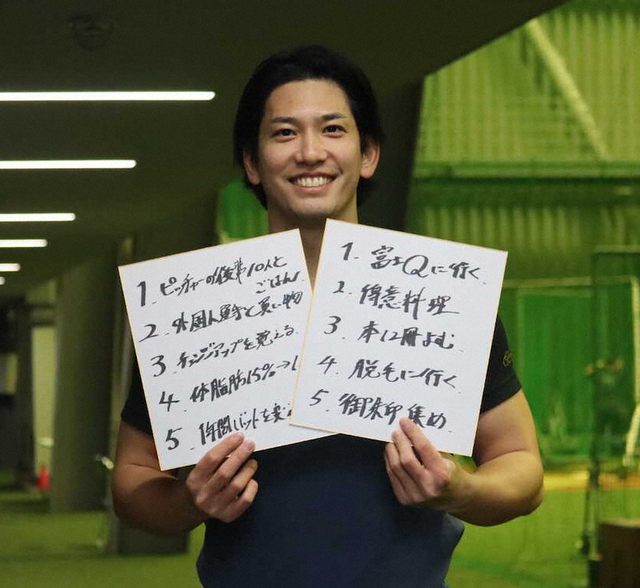 1. ピッチャーの後輩10人と
ごはん!
2. 外国人選手と買い物
3. チェンジアップを覚える
4. 体脂肪15%→1
5. 1年間バットを
1. 富士Qに行く
2. 得意料理
3. 本12冊よむ
4. 脱毛に行く
5. 御朱印集め